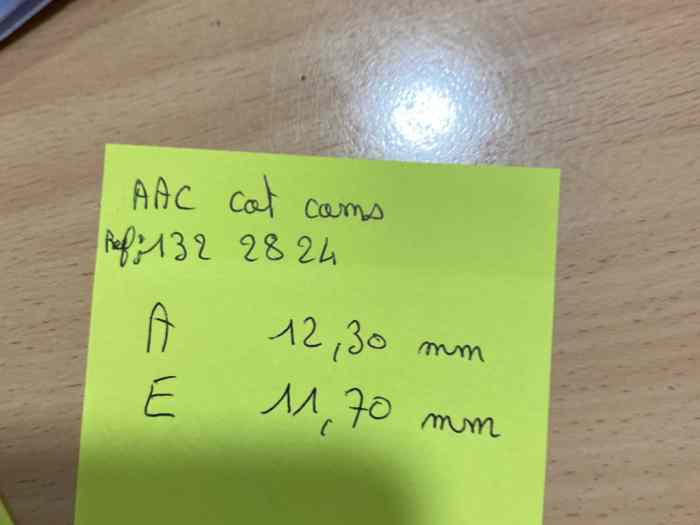 AAC cat cams
Ref: 132 28 24
A 12,30 mm
E 11,70 mm